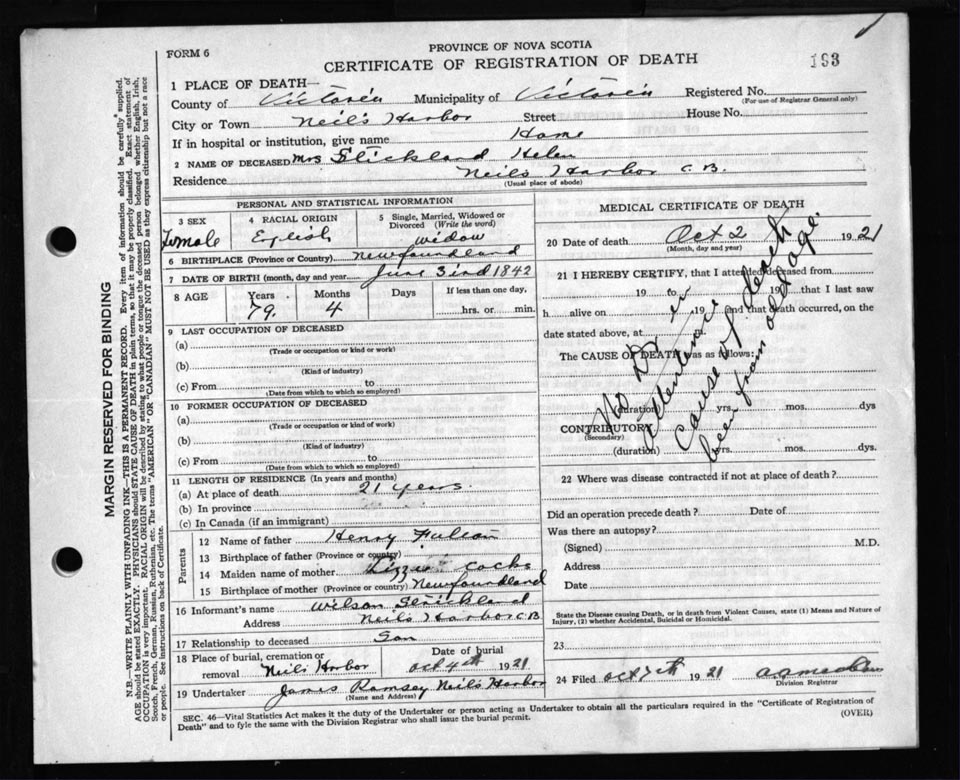 FORM 6
PROVINCE OF NOVA SCOTIA
CERTIFICATE OF REGISTRATION OF DEATH
193
MARGIN RESERVED FOR BINDING
N.B.—WRITE PLAINLY WITH UNFADING INK—THIS IS A PERMANENT RECORD. Every item of information should be carefully supplied.
AGE should be stated EXACTLY. PHYSICIANS should STATE CAUSE OF DEATH in plain terms, so that it may be properly classified. Exact statement of
OCCUPATION is very important. RACIAL ORIGIN will be described by stating to what people or tongue the deceased person belonged whether English, Irish,
Scotch, French, German, Russian, Ruthenian, etc. The terms "AMERICAN" OR "CANADIAN" MUST NOT BE USED as they express citizenship but not a race
or people. See instructions on back of Certificate.
1 PLACE OF DEATH—
County of Victoria Municipality of Victoria Registered No.
(For use of Registrar General only)
City or Town Neil's Harbor Street House No.
If in hospital or institution, give name Home
2 NAME OF DECEASED Mrs Stickland Helen
Residence Neils Harbor C.B.
(Usual place of abode)
PERSONAL AND STATISTICAL INFORMATION
3 SEX
Female
4 RACIAL ORIGIN
English
5 Single, Married, Widowed or
Divorced (Write the word)
widow
6 BIRTHPLACE (Province or Country) Newfoundland
7 DATE OF BIRTH (month, day and year) June 1842
8 AGE
Years
79.
Months
4
Days
If less than one day,
hrs. or min.
9 LAST OCCUPATION OF DECEASED
(a)
(Trade or occupation or kind or work)
(b)
(Kind of industry)
(c) From to
(Date from which to which so employed)
10 FORMER OCCUPATION OF DECEASED
(a)
(Trade or occupation or kind of work)
(b)
(Kind of industry)
(c) From to
(Date from which to which so employed)
11 LENGTH OF RESIDENCE (In years and months)
(a) At place of death 21 years.
(b) In province
(c) In Canada (if an immigrant)
Parents
12 Name of father Henry
13 Birthplace of father (Province or country)
14 Maiden name of mother Lizzie Cocks
15 Birthplace of mother (Province or country) Newfoundland
16 Informant's name Wilson Strickland
Address Neils Harbor C.B.
17 Relationship to deceased Son
18 Place of burial, cremation or
removal Neils Harbor
Date of burial
Oct 4th 1921
19 Undertaker James Ramsey Neil's Harbor
(Name and Address)
MEDICAL CERTIFICATE OF DEATH
20 Date of death Oct 2 1921
(Month, day and year)
21 I HEREBY CERTIFY, that I attended deceased from
19 to 19 that I last saw
h alive on 19 and that death occurred, on the
date stated above, at
The CAUSE OF DEATH was as follows:
No Dr in
attendance
cause of death
been from old age.
(duration) yrs. mos. dys
CONTRIBUTORY
(Secondary)
(duration) yrs. mos. dys.
22 Where was disease contracted if not at place of death?
Did an operation precede death? Date of
Was there an autopsy?
(Signed) M.D.
Address
Date
State the Disease causing Death, or in death from Violent Causes, state (1) Means and Nature of
Injury, (2) whether Accidental, Suicidal or Homicidal.
23
24 Filed Oct 7th 1921
Division Registrar
SEC. 46—Vital Statistics Act makes it the duty of the Undertaker or person acting as Undertaker to obtain all the particulars required in the "Certificate of Registration of
Death" and to fyle the same with the Division Registrar who shall issue the burial permit.
(OVER)